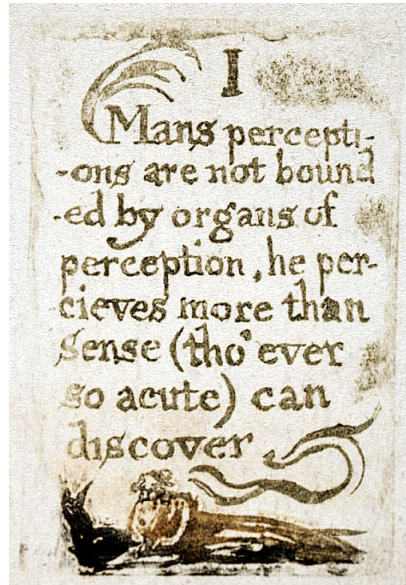 I
Mans percepti-
-ons are not bound
-ed by organs of
perception, he per-
cieves more than
sense (tho' ever
so acute) can
discover